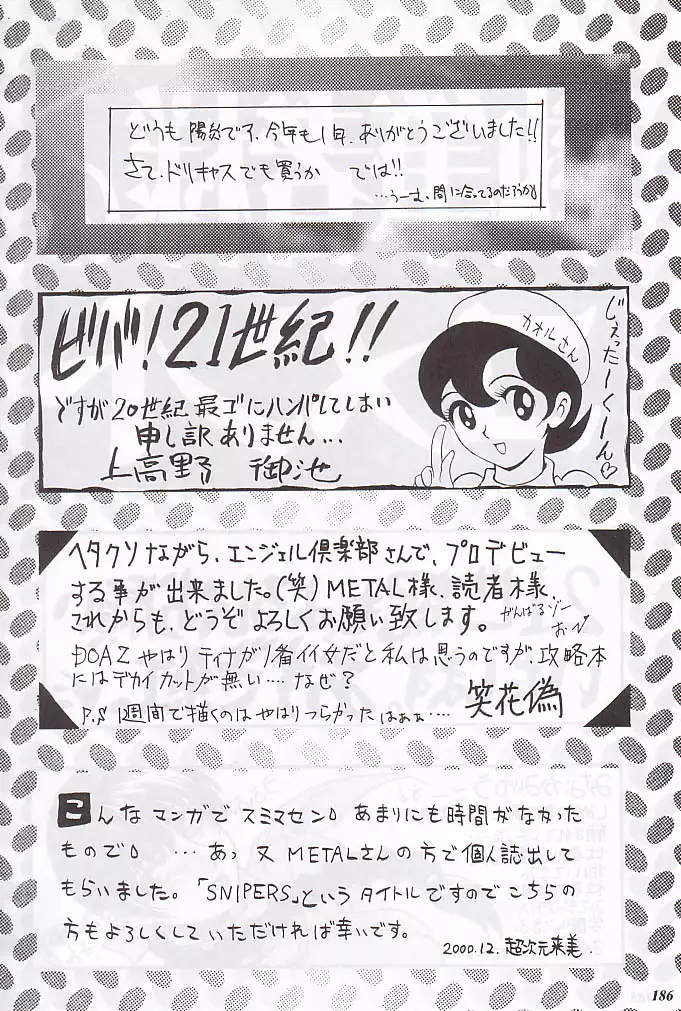 どうも陽炎です、今年も1年、ありがとうございました!!
さて、ドリキャスでも買うか では!!
…うーむ、間に合ってるのだろうか
ビバ!21世紀!!
ですが20世紀最ゴにハンパしてしまい
申し訳ありません...
上高野 御池
カオルさん
じぇったーくーん♡
ヘタクソながら、エンジェル倶楽部さんで、プロデビュー
する事が出来ました。(笑)METAL様、読者様、
これからも、どうぞよろしくお願い致します。
がんばるゾー
おー
DOA2やはりティナが1番イイ女だと私は思うのですが、攻略本
にはデカイカットが無い…. なぜ?
笑花偽
P.S 1週間で描くのはやはりつらかったはぁぁ….
こんなマンガでスミマセン。あまりにも時間がなかった
もので。…あっ又METALさんの方で個人誌出して
もらいました。「SNIPERS」というタイトルですのでこちらの
方もよろしくしていただければ幸いです。
2000.12. 超次元来美.
186